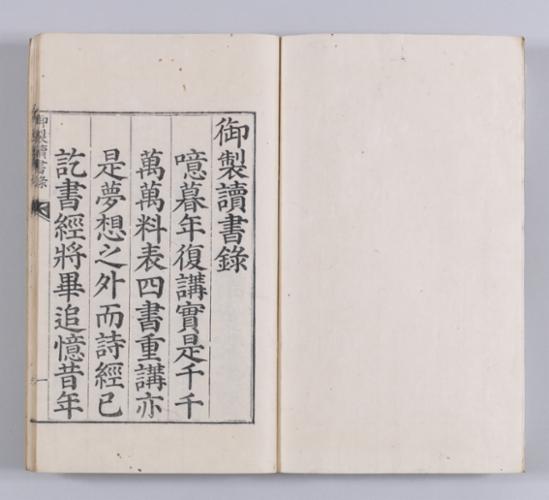 御製讀書錄
噫暮年復講實是千千
萬萬料表四書重講亦
是夢想之外而詩經已
訖書經將畢追憶昔年
御製讀書錄
一